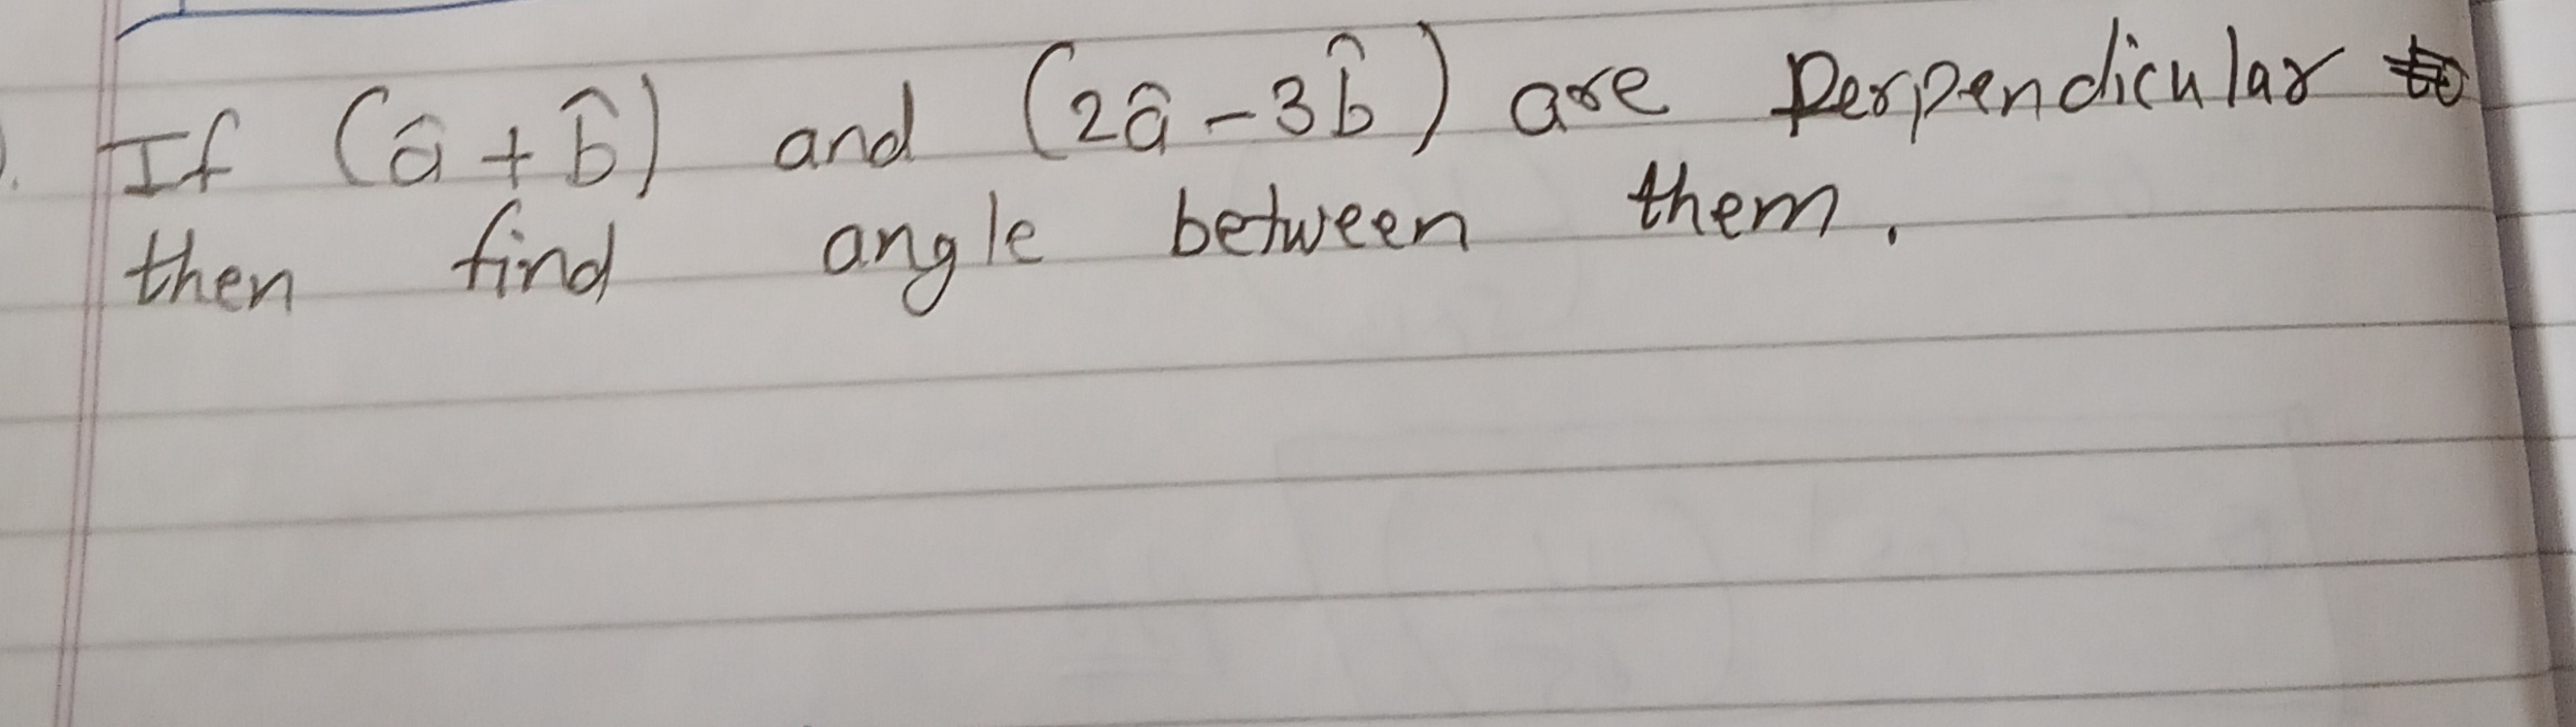 If (â + b̂) and (2â - 3b̂) are perpendicular
then find angle between them.